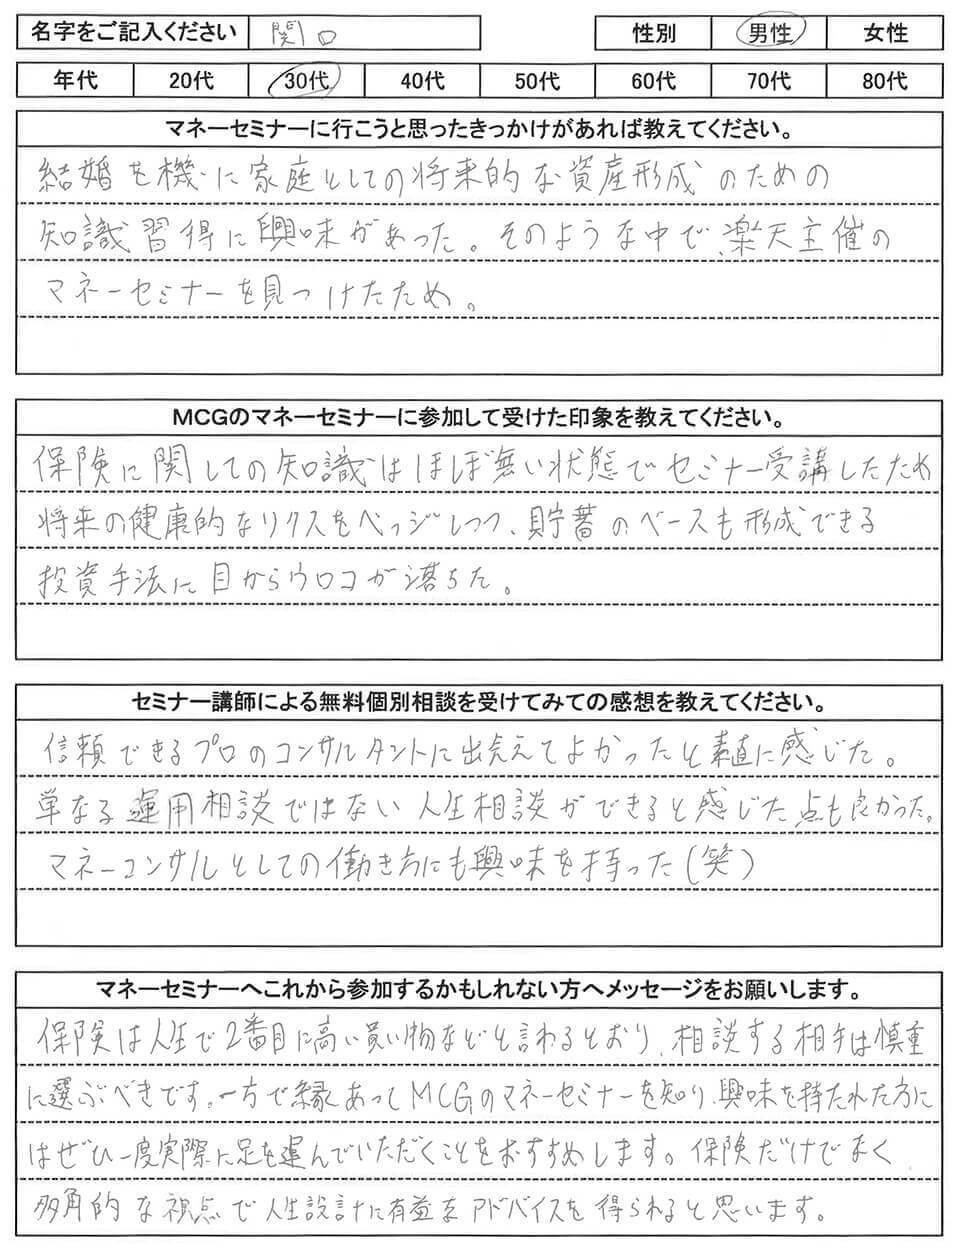 名字をご記入ください 関口 性別 男性 女性
年代 20代 30代 40代 50代 60代 70代 80代
マネーセミナーに行こうと思ったきっかけがあれば教えてください。
結婚を機に家庭としての将来的な資産形成のための
知識習得に興味があった。そのような中で、楽天主催の
マネーセミナーを見つけたため。
MCGのマネーセミナーに参加して受けた印象を教えてください。
保険に関しての知識はほぼ無い状態でセミナー受講したため
将来の健康的なリクスをヘッジしつつ、貯蓄のベースも形成できる
投資手法に目からウロコが落ちた。
セミナー講師による無料個別相談を受けてみての感想を教えてください。
信頼できるプロのコンサルタントに出会えてよかったと素直に感じた。
単なる運用相談ではない人生相談ができると感じた点も良かった。
マネーコンサルとしての働き方にも興味を持った(笑)
マネーセミナーへこれから参加するかもしれない方へメッセージをお願いします。
保険は人生で2番目に高い買い物などと言わるとおり、相談する相手は慎重
に選ぶべきです。一方で縁あってMCGのマネーセミナーを知り、興味を持たれた方に
はぜひ一度実際に足を運んでいただくことをおすすめします。保険だけでなく
多角的な視点で人生設計に有益なアドバイスを得られると思います。